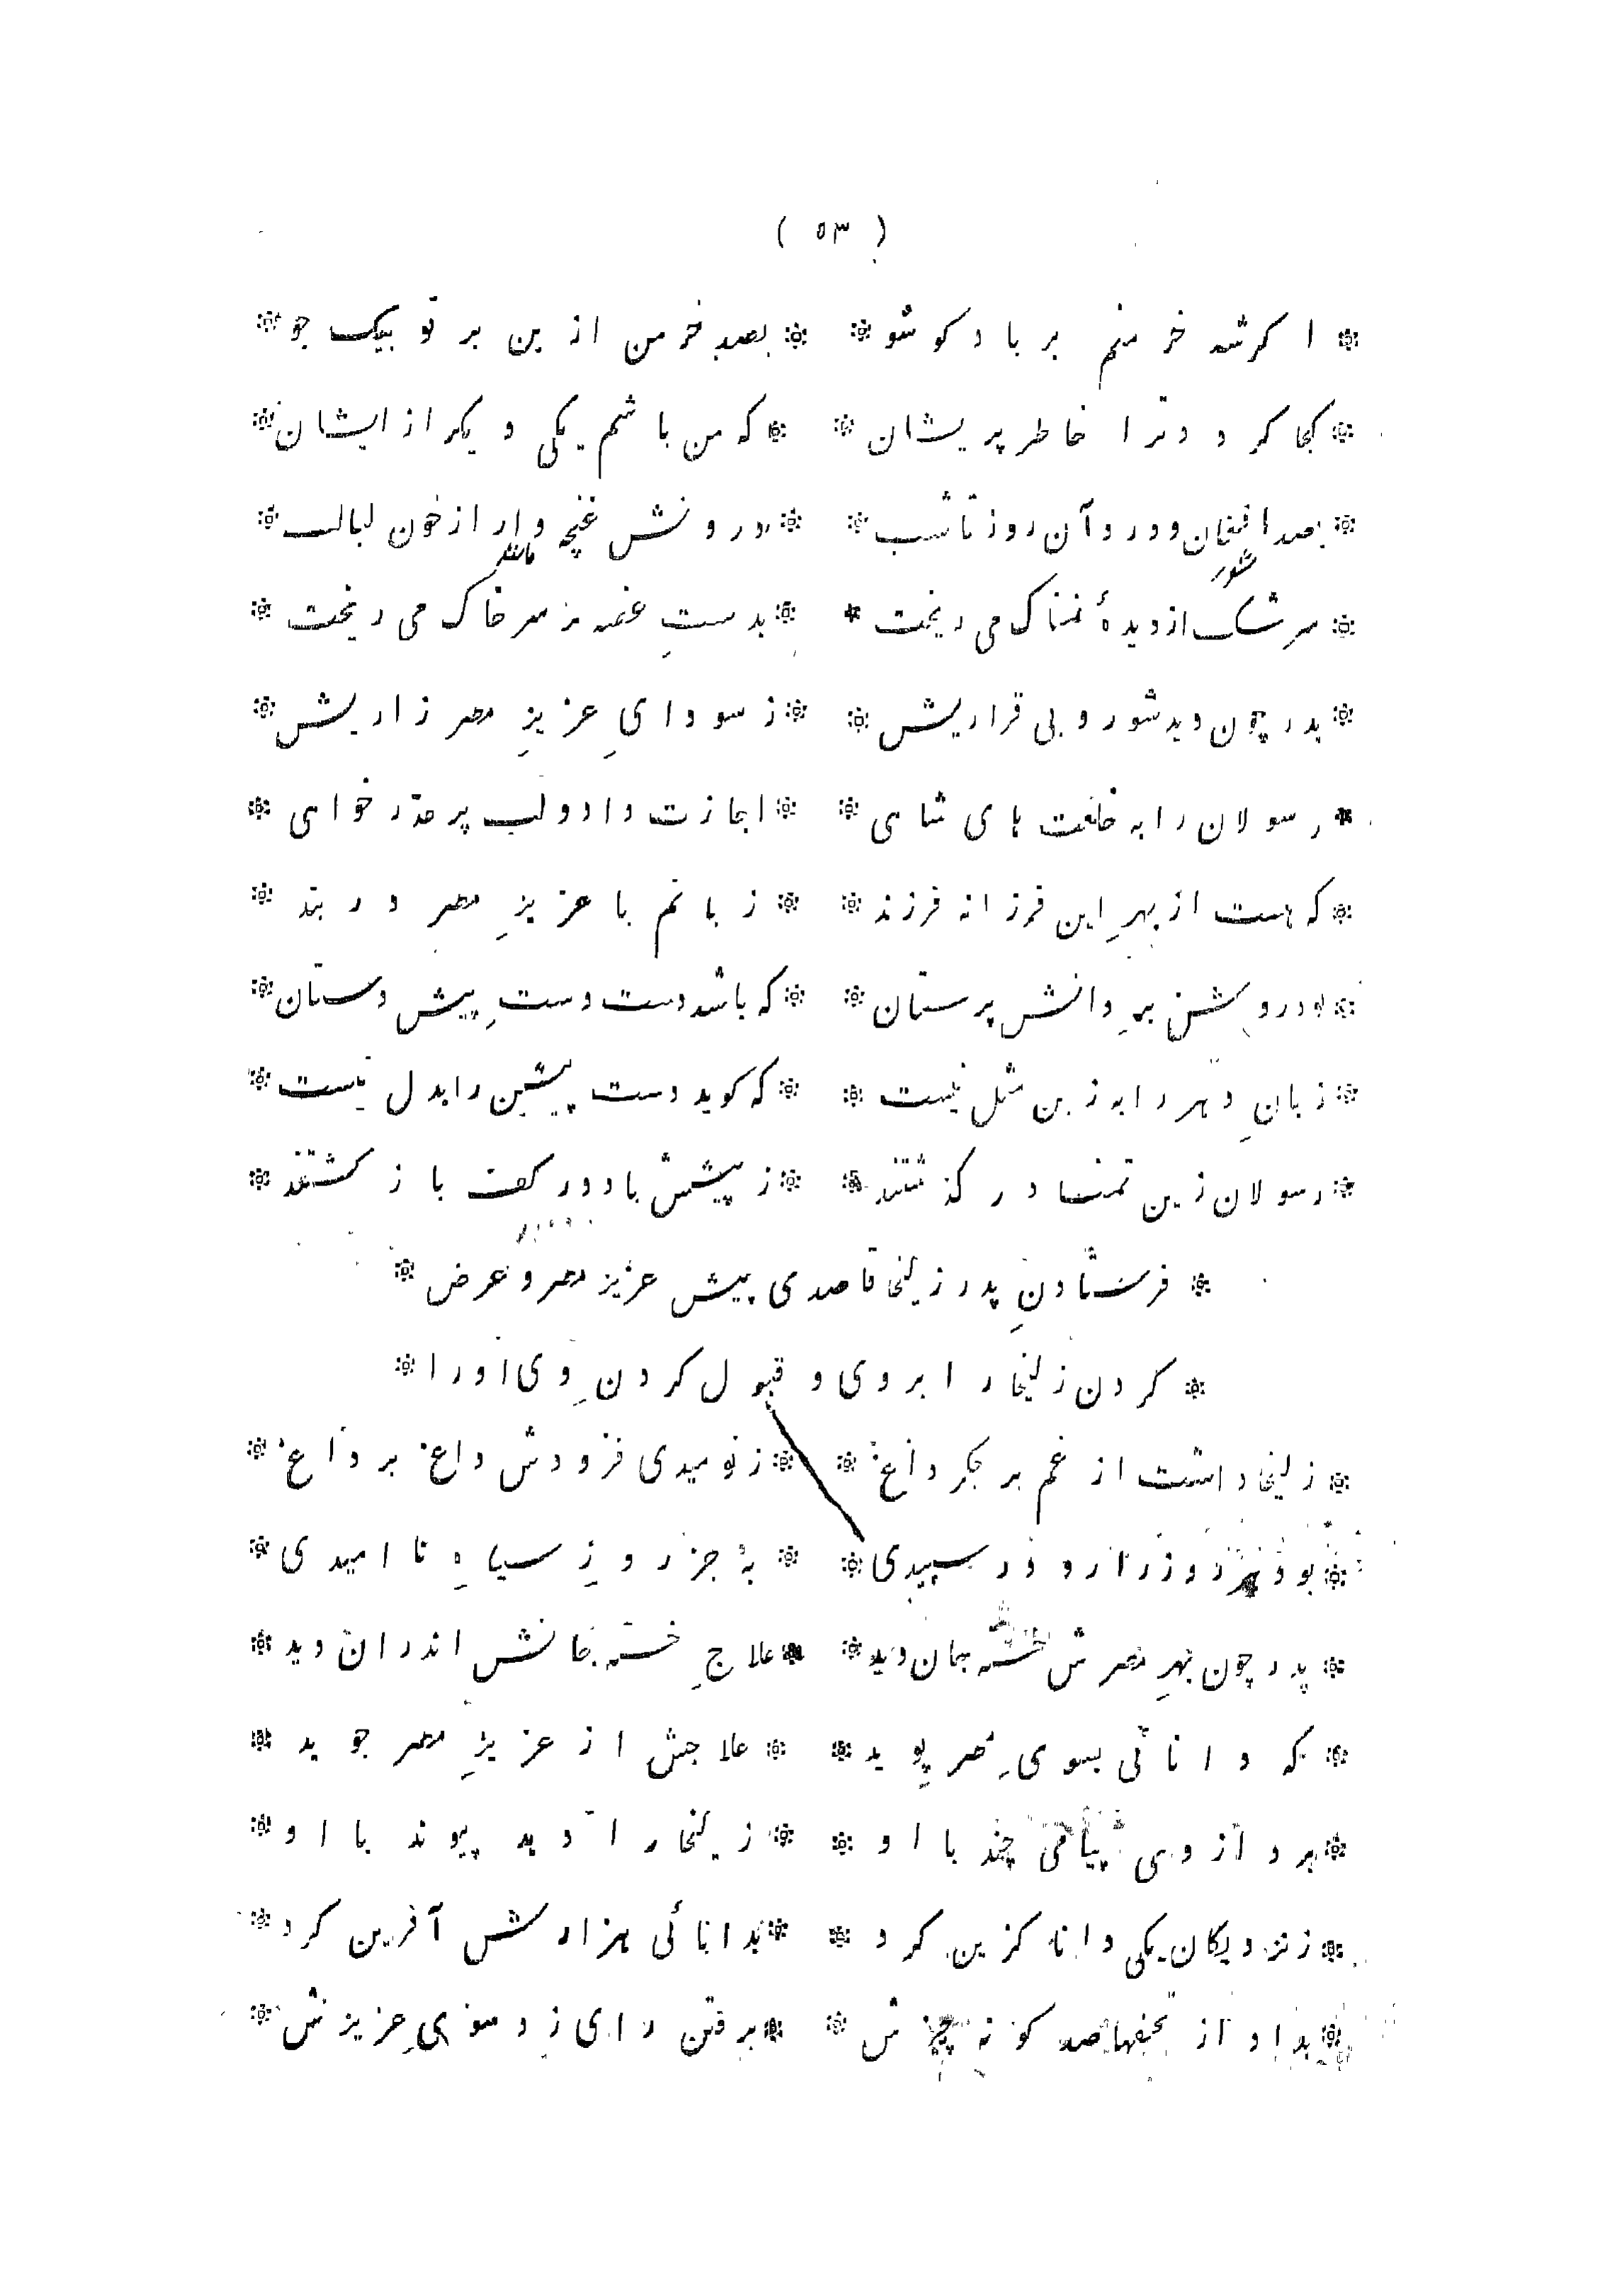 ( ۵۳ )
* اکرشد خرمنم برباد کو شو * * بصد خرمن ازین بر تو بیک جو *
* کجا کردد ترا خاطر پریشان * * که من باشم یکی دیکر از ایشان *
* بصد افغان و درد آن روز تا شب * * درونش غنچه وار از خون لبالب *
شور مانند
* سرشک از دیدهٔ نمناک می ریخت * * بدستِ غصه بر سر خاک می ریخت *
* پدر چون دید شور و بی قراریش * * ز سودایِ عزیزِ مصر زاریش *
* رسولان را به خلعت های شاهی * * اجازت داد و لب پر عذر خواهی *
* که هست از بهرِ این فرزانه فرزند * * زبانم با عزیزِ مصر در بند *
* بود روشن برِ دانش پرستان * * که باشد دست دستِ پیش دستان *
* زبانِ دهر را به زین مثل نیست * * که کوید دست پیشین را بدل نیست *
* رسولان زین تمنا در کذشتند * * ز پیشش باد در کف باز کشتند *
* فرستادنِ پدر زلیخا قاصدی پیش عزیز مصر و عرض *
* کردن زلیخا را بروی و قبول کردنِ وی اورا *
* زلیخا داشت از غم بر جکر داغ * * ز نومیدی فزودش داغ بر داغ *
* بود هر روز را رو در سپیدی * * به جز روزِ سیاهِ نا امیدی *
* پدر چون بهرِ مصرش خسته جان دید * * علاجِ خسته جانش اندران دید *
* که دانائی بسوی مصر پوید * * علاجش از عزیزِ مصر جوید *
* برد از وی پیامی چند با او * * زلیخا را دهد پیوند با او *
* ز نزدیکان یکی دانا کزین کرد * * بدانائی هزارش آفرین کرد *
* بداد از تحفها صد کونه چیزش * * برفتن رای زد سویِ عزیزش *